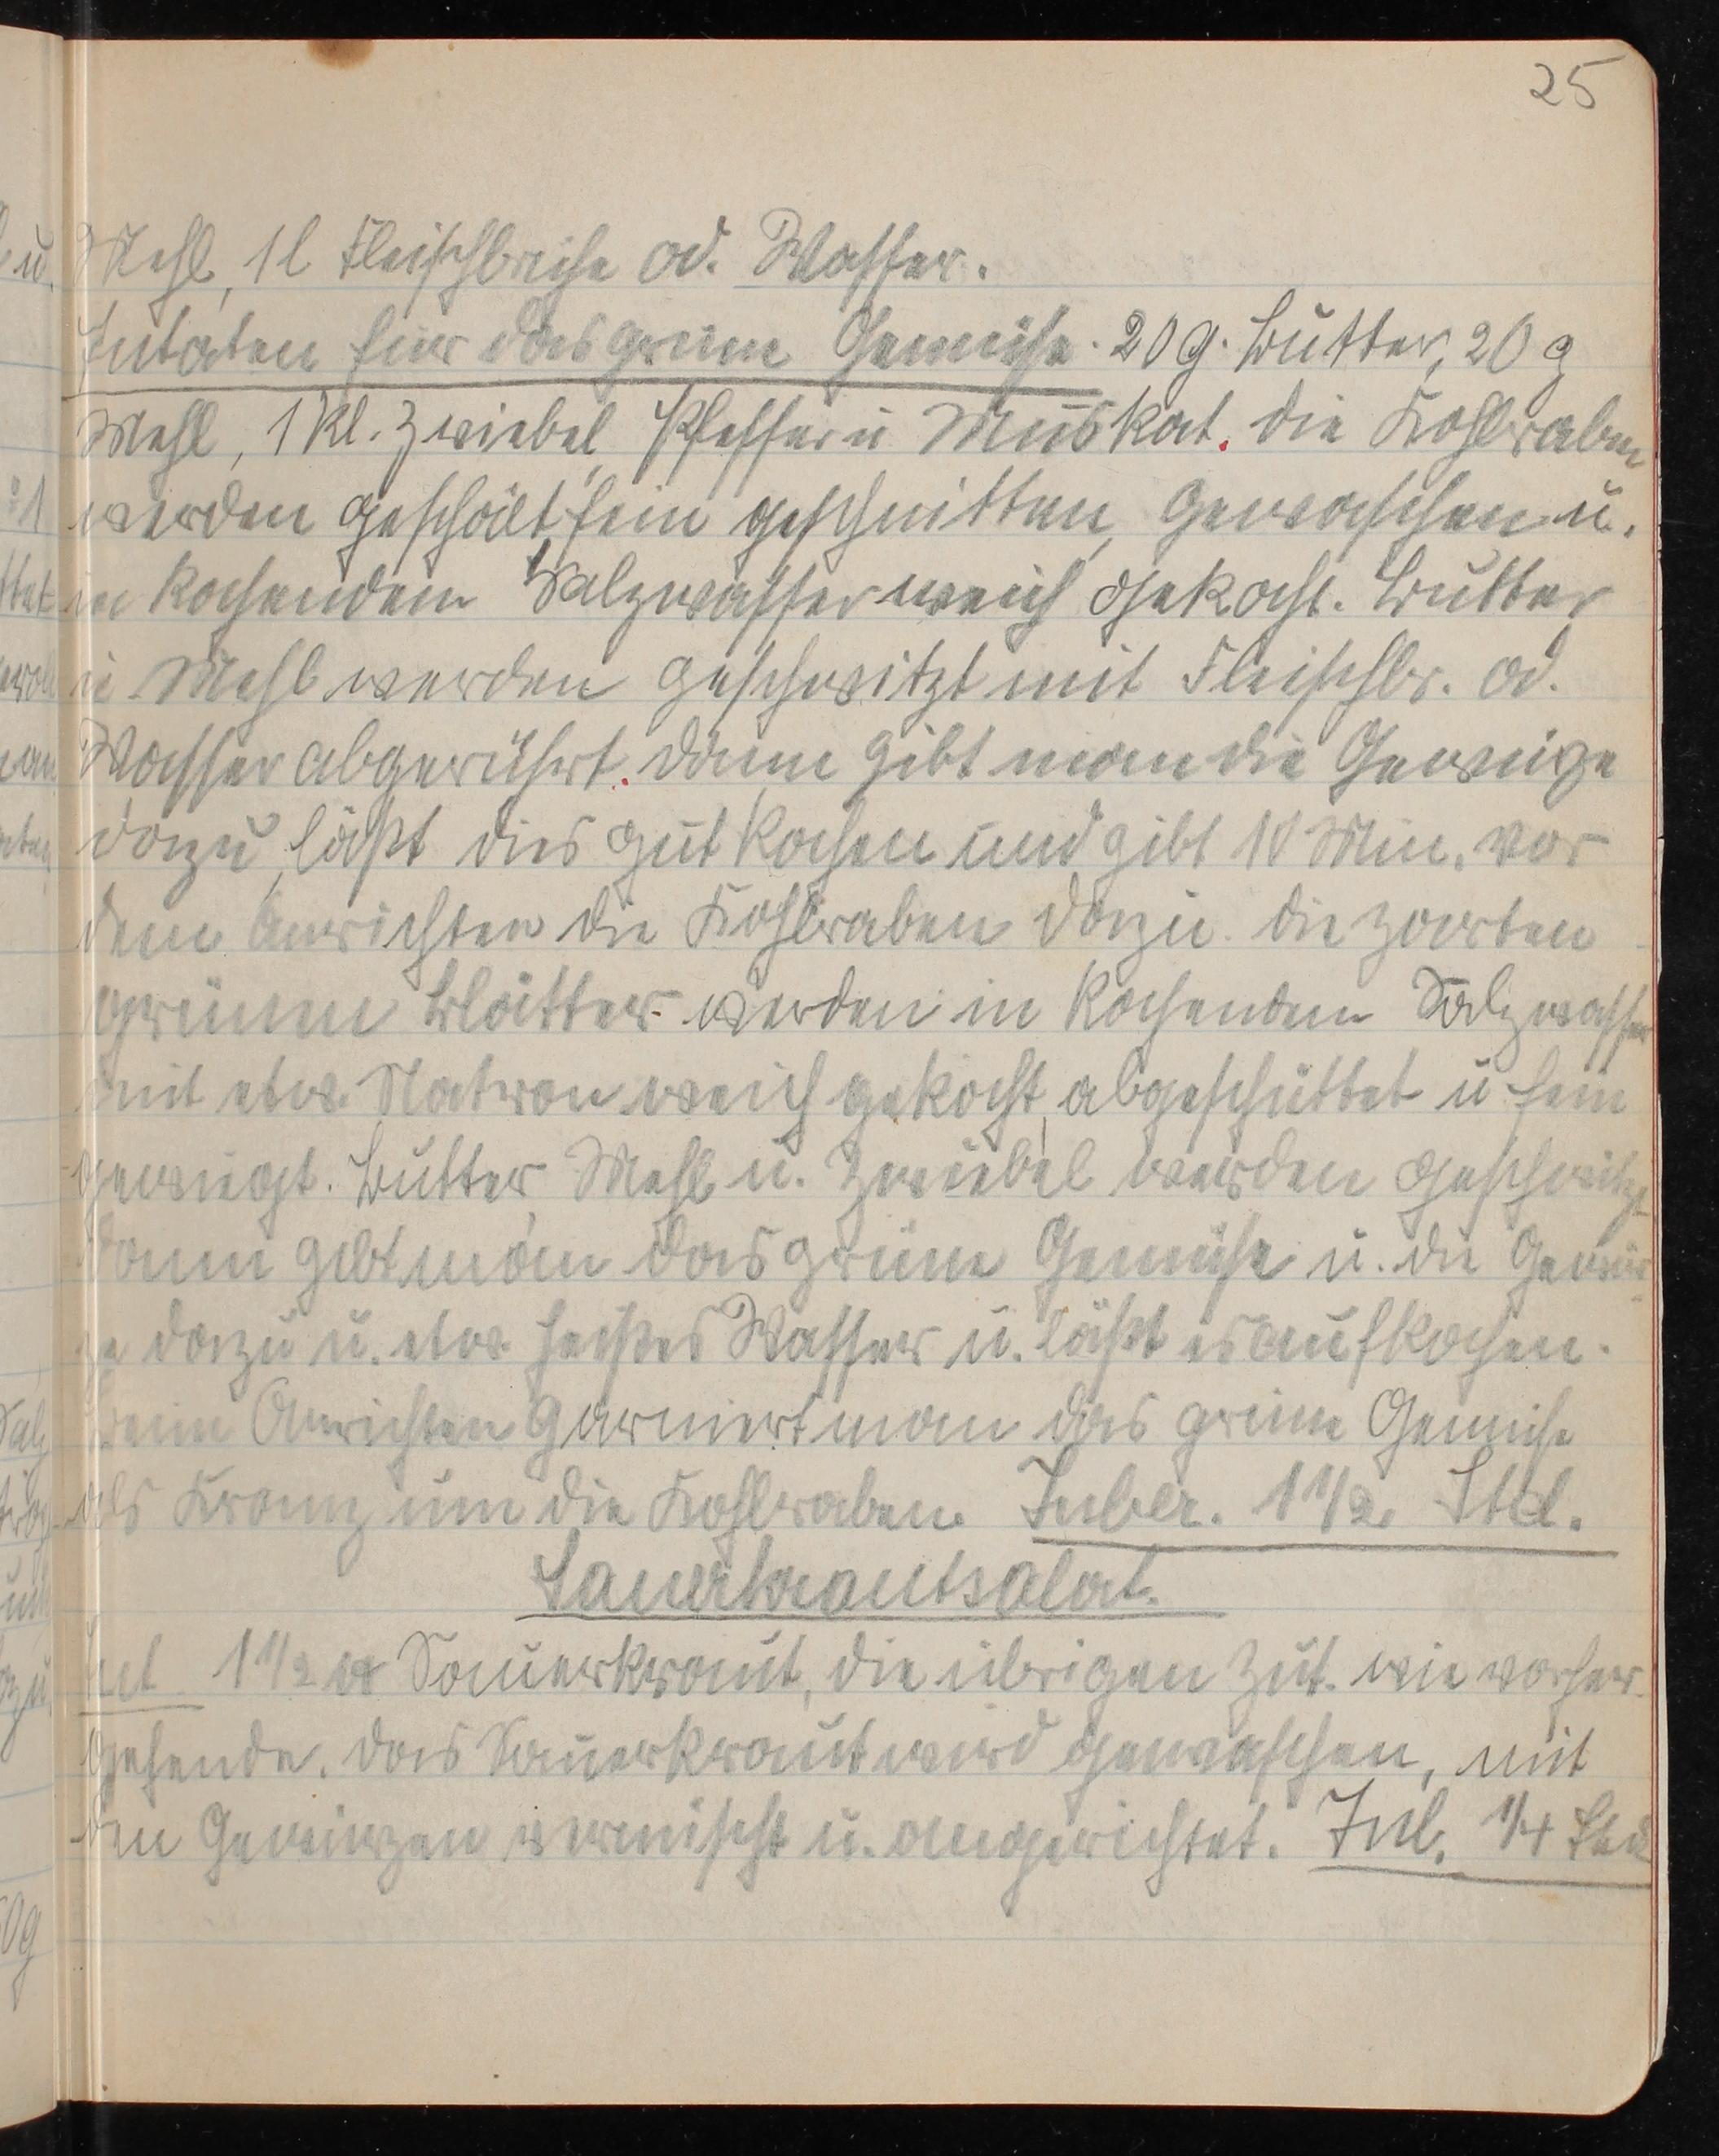 25
Mehl, 1 l Fleischbrühe od. Wasser.
Zutaten für das grüne Gemüse. 20 g. Butter, 20 g
Mehl, 1 Kl. Zwiebel, Pfeffer u Muskat. die Kohlraben
werden geschält, fein geschnitten, gewaschen u.
in kochendem Salzwasser weich gekocht. Butter
u Mehl werden geschwitzt mit Fleischbr. od.
Wasser abgerührt. dann gibt man die Gewürze
dazu, läßt dies gut kochen und gibt 10 Min. vor
dem Anrichten die Kohlraben dazu. die zarten
grünen Blätter werden in kochendem Salzwasser
mit etw. Natron weich gekocht, abgeschüttet u fein
gewiegt. Butter, Mehl u. Zwiebel werden geschwitzt
dann gibt man das grüne Gemüse u. die Gewür-
ze dazu u. etw. heißes Wasser u. läßt es aufkochen.
Beim Anrichten garniert man das grüne Gemüse
als Kranz um die Kohlraben. Zuber. 1 1/2 Std.
Sauerkrautsalat.
Zut 1 1/2 ℔ Sauerkraut, die übrigen Zut. wie vorher-
gehende. das Sauerkraut wird gewaschen, mit
den Gewürzen vermischt u. angerichtet. Zub. 1/4 Std